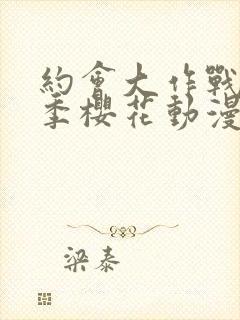 約會大作戰
季櫻花動漫
梁泰